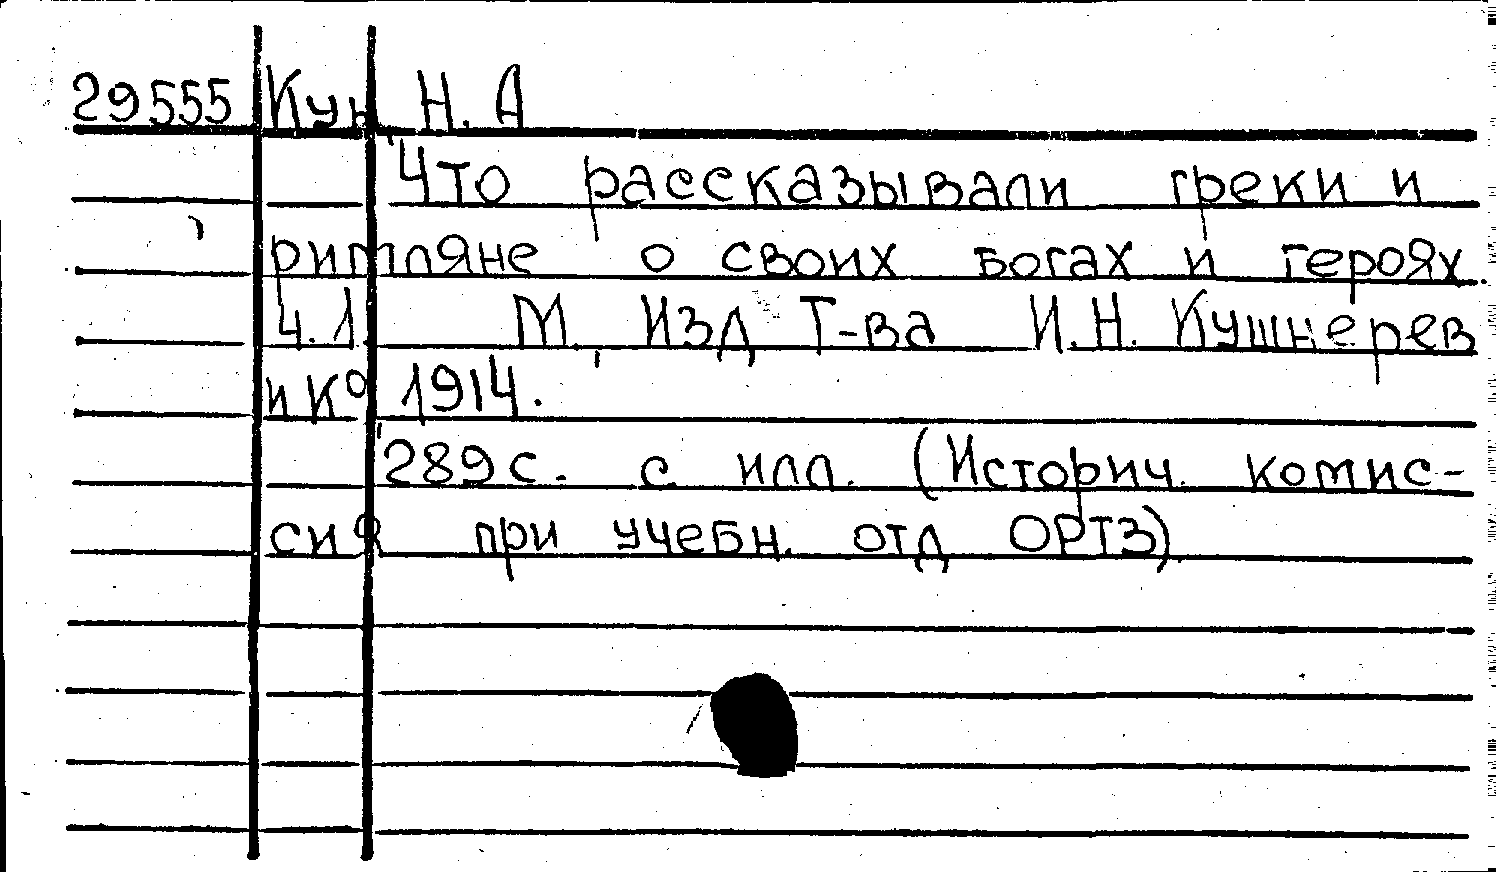 29555 Кун Н. А
Что рассказывали греки и
римляне о своих богах и героях
Ч. 1 М. Изд. Т-ва И. Н. Кушнерев
и К° 1914.
289 с. с илл. (Историч. комис-
сия при учебн. отд ОРТЗ)